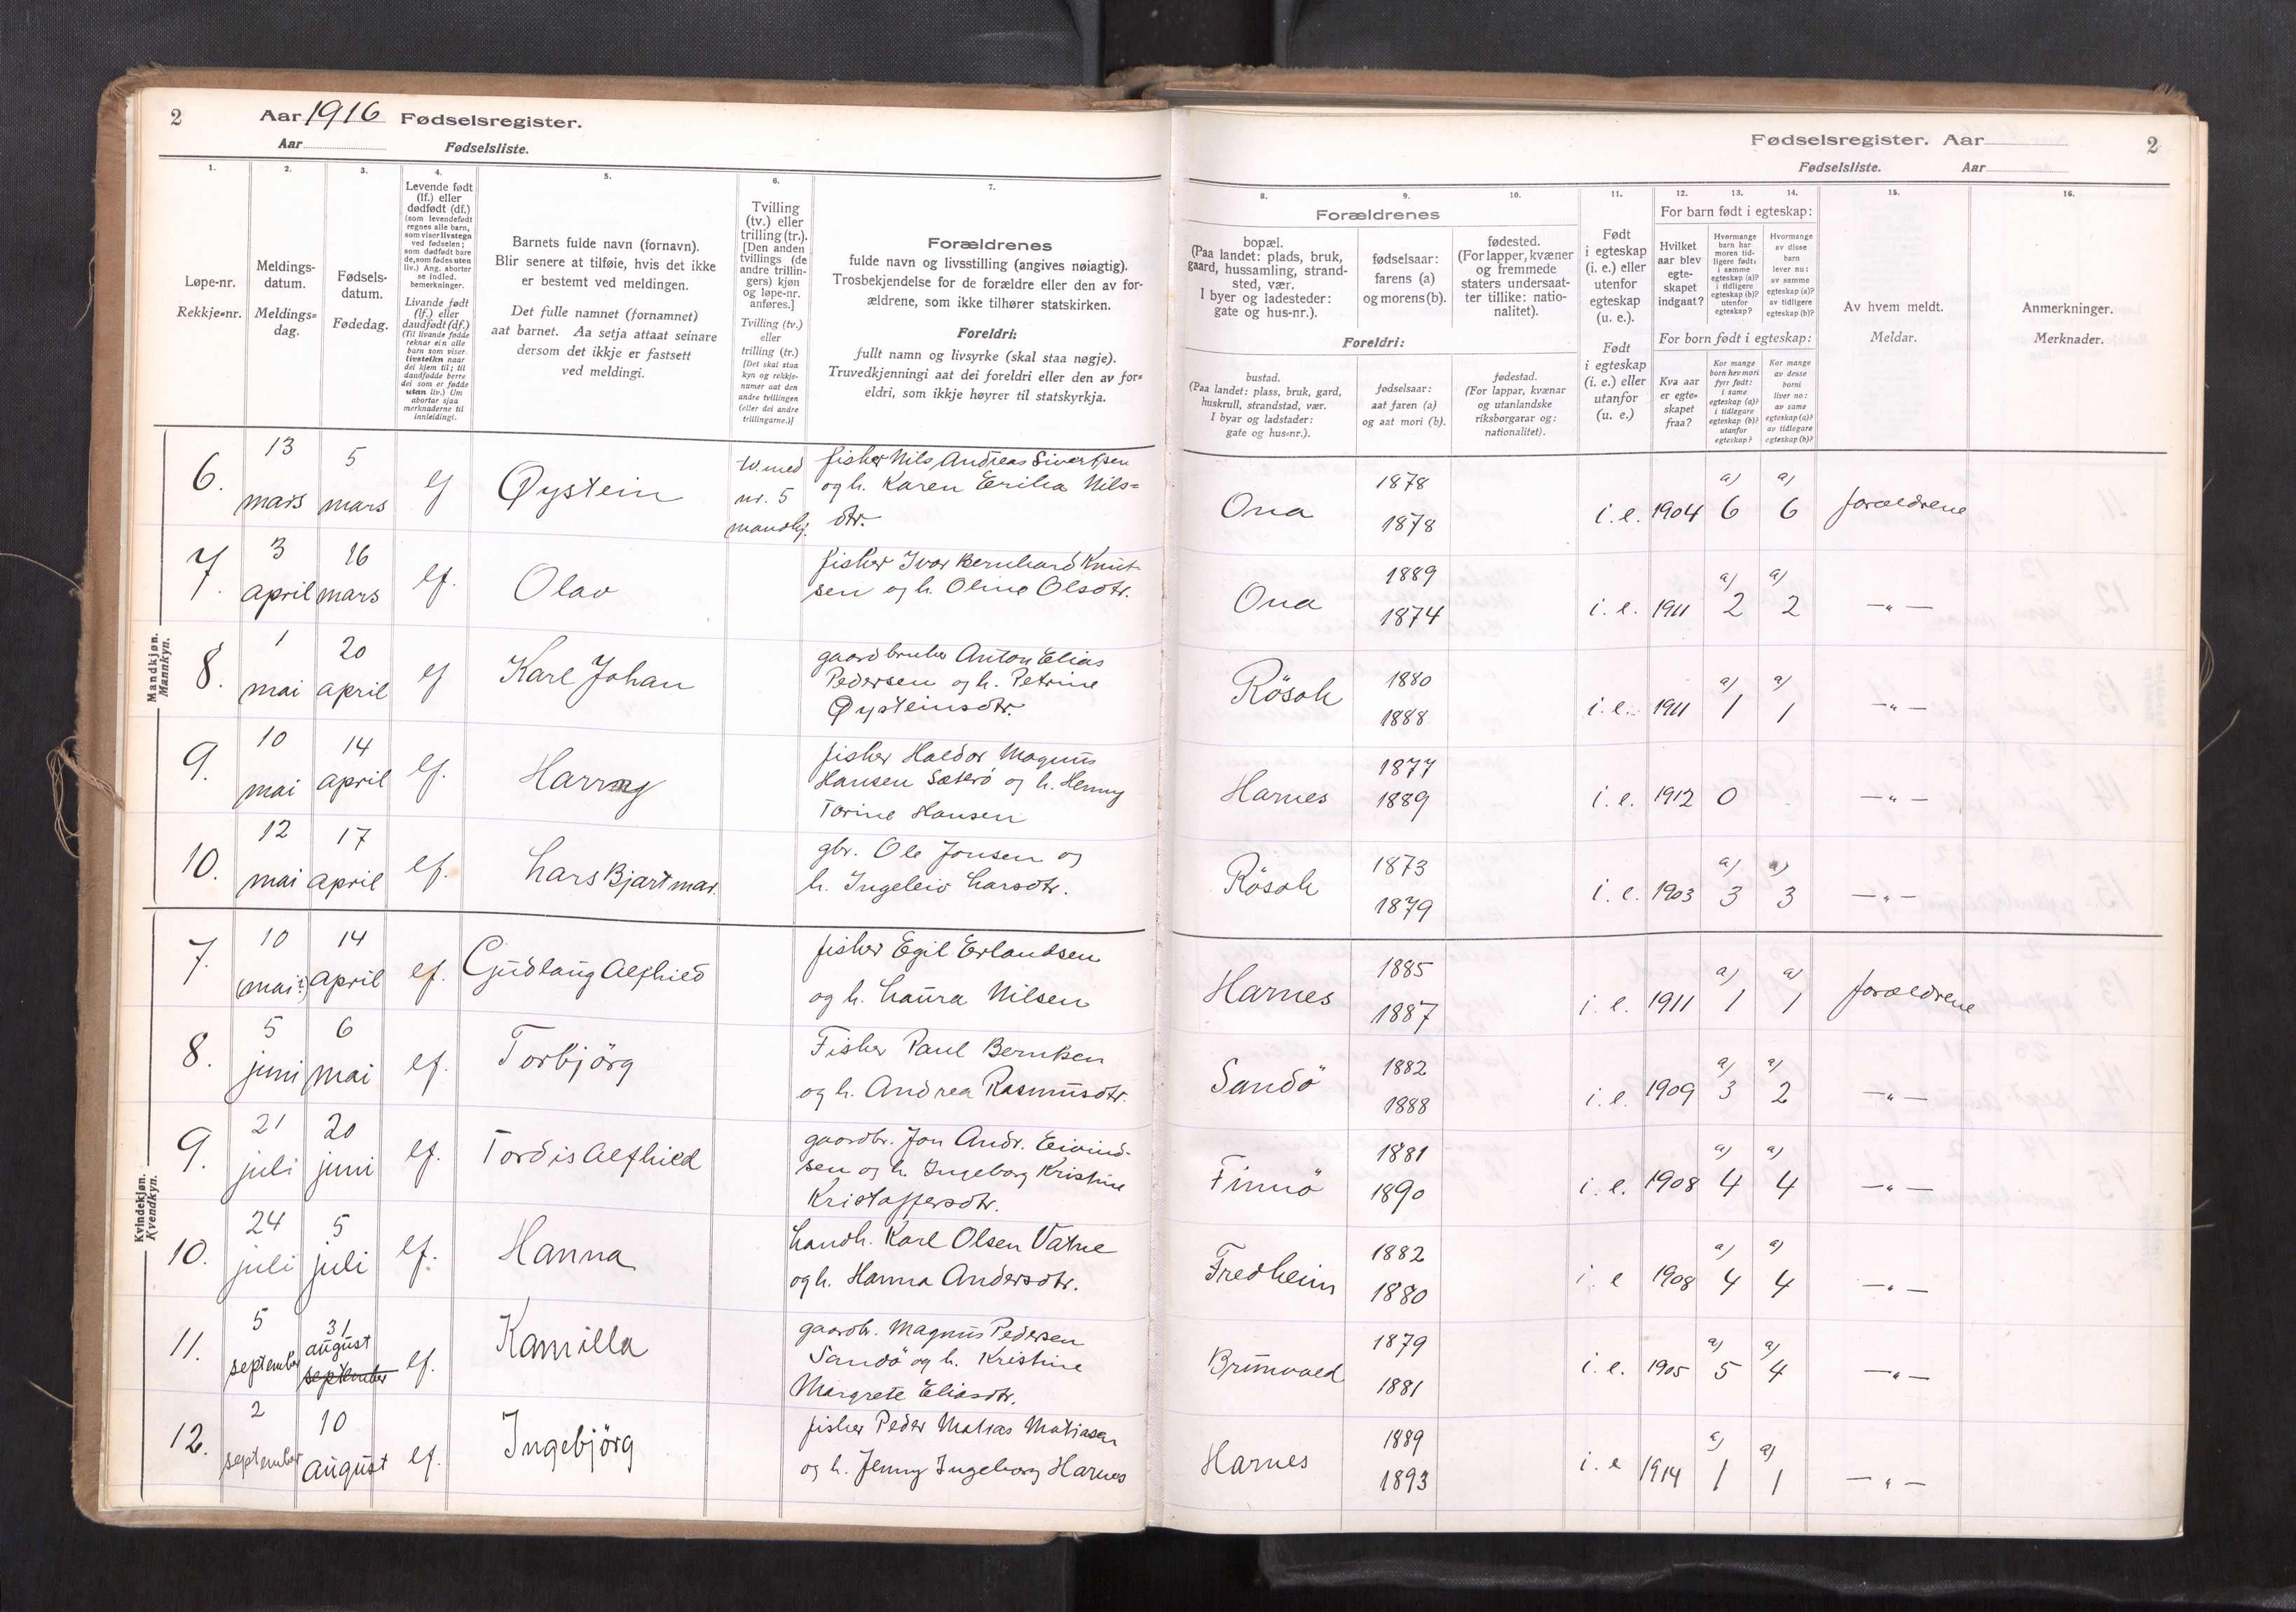 2 Aar 1916 Fødselsregister.
Aar Fødselsliste.
1.
Løpe-nr.
Rekkje=nr.
2.
Meldings-
datum.
Meldings=
dag.
3.
Fødsels-
datum.
Fødedag.
4.
Levende født
(lf.) eller
dødfødt (df.)
(som levendefødt
regnes alle barn,
som viser livstegn
ved fødselen;
som dødfødt bare
de, som fødes uten
liv.) Ang. aborter
se indled.
bemerkninger.
Livande født
(lf.) eller
daudfødt (df.)
(Til livande fødde
reknar ein alle
barn som viser
livsteikn naar
dei kjem til; til
daudfødde berre
dei som er fødde
utan liv.) Um
abortar sjaa
merknaderne til
innleidingi.
5.
Barnets fulde navn (fornavn).
Blir senere at tilføie, hvis det ikke
er bestemt ved meldingen.
Det fulle namnet (fornamnet)
aat barnet. Aa setja attaat seinare
dersom det ikkje er fastsett
ved meldingi.
6.
Tvilling
(tv.) eller
trilling (tr.).
[Den anden
tvillings (de
andre trillin-
gers) kjøn
og løpe-nr.
anføres.]
Tvilling (tv.)
eller
trilling (tr.)
[Det skal staa
kyn og rekkje-
numer aat den
andre tvillingen
(eller dei andre
trillingarne.)]
7.
Forældrenes
fulde navn og livsstilling (angives nøiagtig).
Trosbekjendelse for de forældre eller den av for-
ældrene, som ikke tilhører statskirken.
Foreldri:
fullt namn og livsyrke (skal staa nøgje).
Truvedkjenningi aat dei foreldri eller den av for=
eldri, som ikkje høyrer til statskyrkja.
Mandkjøn.
Mannkyn.
6. 13 mars 5 mars lf Øystein tv. med
nr. 5
mandkj.
fisker Nils Andreas Sivertsen
og h. Karen Erika Nils=
dtr.
7. 3 april 16 mars lf. Olav
fisker Ivar Bernhard Knut-
sen og h. Oline Olsdtr.
8. 1 mai 20 april lf Karl Johan
gaardbruker Anton Elias
Pedersen og h. Petrine
Øysteinsdtr.
9. 10 mai 14 april lf. Harry
fisker Haldor Magnus
Hansen Sæterö og h. Henny
Torine Hansen
10. 12 mai 17 april lf. Lars Bjartmar.
gbr. Ole Jonsen og
h. Ingeleiv Larsdtr.
Kvindekjøn.
Kvendkyn.
7. 10 (mai?) 14 april lf. Gudlaug Alfhild
fisker Egil Erlandsen
og h. Laura Nilsen
8. 5 juni 6 mai lf. Torbjörg
Fisker Paul Berntsen
og h. Andrea Rasmusdtr.
9. 21 juli 20 juni lf. Tordis Alfhild
gaardbr. Jon Andr. Eivind-
sen og h. Ingeborg Kristine
Kristoffersdtr.
10. 24 juli 5 juli lf. Hanna
handl. Karl Olsen Vatne
og h. Hanna Andersdtr.
11. 5 september 31 august september lf. Kamilla
gaardbr. Magnus Pedersen
Sandö og h. Kristine
Margrete Eliasdtr.
12. 2 september 10 august lf. Ingebjörg
fisker Peder Matias Matiasen
og h. Jenny Ingeborg Harnes
Fødselsregister. Aar 2
Fødselsliste. Aar
8.
Forældrenes
bopæl.
(Paa landet: plads, bruk,
gaard, hussamling, strand-
sted, vær.
I byer og ladesteder:
gate og hus-nr.).
Foreldri:
bustad.
(Paa landet: plass, bruk, gard,
huskrull, strandstad, vær.
I byar og ladstader:
gate og hus=nr.).
9.
fødselsaar:
farens (a)
og morens (b).
fødselsaar:
aat faren (a)
og aat mori (b).
10.
fødested.
(For lapper, kvæner
og fremmede
staters undersaat-
ter tillike: natio-
nalitet).
fødestad.
(For lappar, kvænar
og utanlandske
riksborgarar og:
nationalitet).
11.
Født
i egteskap
(i. e.) eller
utenfor
egteskap
(u. e.).
Født
i egteskap
(i. e.) eller
utanfor
(u. e.)
12.
For barn født i egteskap:
Hvilket
aar blev
egte-
skapet
indgaat?
For born født i egteskap:
Kva aar
er egte=
skapet
fraa?
13.
Hvormange
barn har
moren tid-
ligere født:
i samme
egteskap (a)?
i tidligere
egteskap (b)?
utenfor
egteskap?
Kor mange
born hev mori
fyrr født:
i same
egteskap (a)?
i tidlegare
egteskap (b)?
utanfor
egteskap?
14.
Hvormange
av disse
barn
lever nu:
av samme
egteskap (a)?
av tidligere
egteskap (b)?
Kor mange
av desse
borni
liver no:
av same
egteskap (a)?
av tidlegare
egteskap (b)?
15.
Av hvem meldt.
Meldar.
16.
Anmerkninger.
Merknader.
Ona 1878 1878 i. e. 1904 a) 6 a) 6 forældrene
Ona 1889 1874 i. e. 1911 a) 2 a) 2 — " —
Rösok 1880 1888 i. e. 1911 a) 1 a) 1 — " —
Harnes 1877 1889 i. e. 1912 0 — " —
Rösok 1873 1879 i. e. 1903 a) 3 a) 3 — " —
Harnes 1885 1887 i. e. 1911 a) 1 a) 1 forældrene
Sandö 1882 1888 i. e. 1909 a) 3 a) 2 — " —
Finnö 1881 1890 i. e. 1908 a) 4 a) 4 — " —
Fredheim 1882 1880 i. e 1908 a) 4 a) 4 — " —
Brunvold 1879 1881 i. e. 1905 a) 5 a) 4 — " —
Harnes 1889 1893 i. e 1914 a) 1 a) 1 — " —